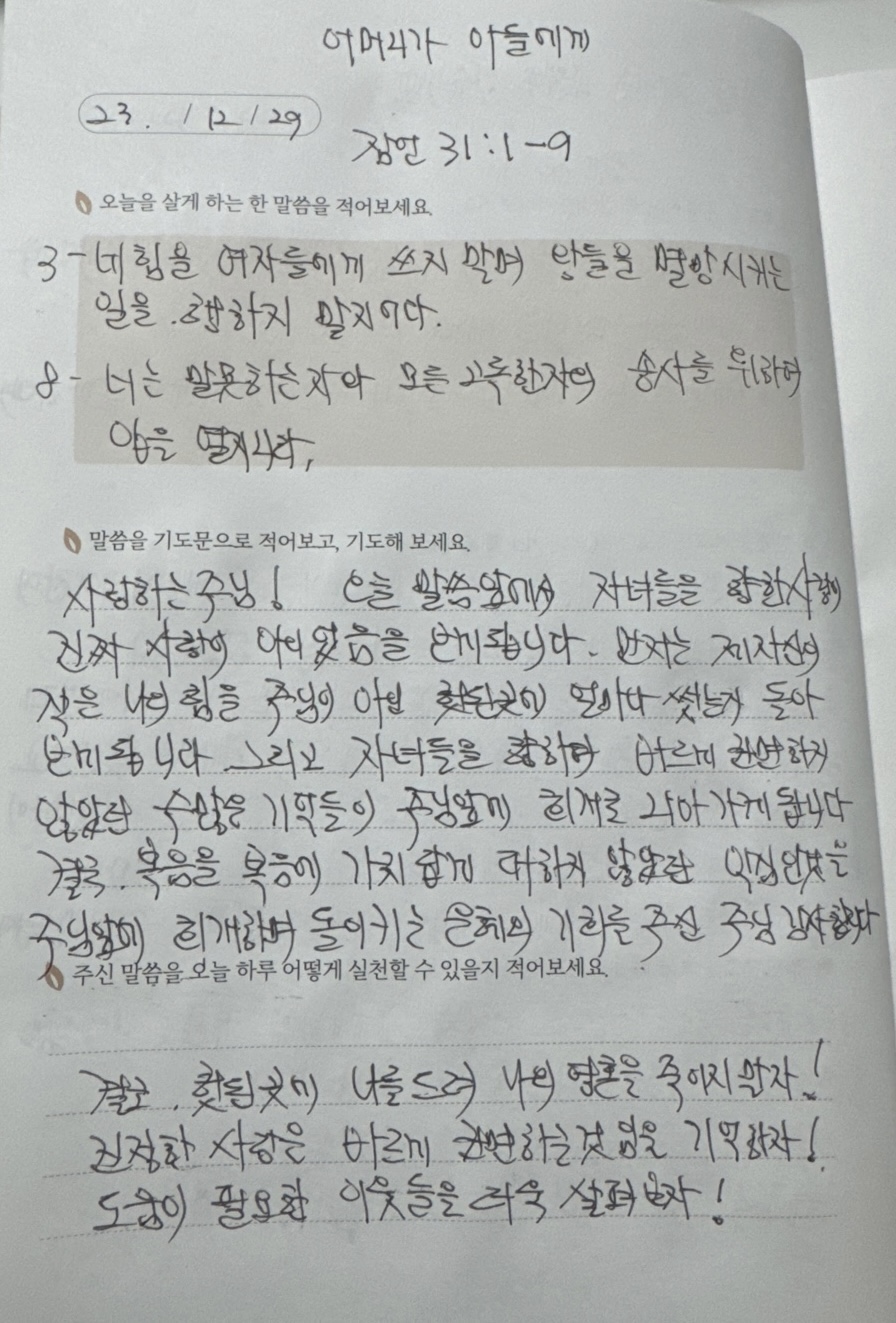 어머니가 아들에게
23. / 12 / 29
잠언 31:1-9
오늘을 살게 하는 한 말씀을 적어보세요.
3 - 네 힘을 여자들에게 쓰지 말며 왕들을 멸망시키는
일을 행하지 말지어다.
8 - 너는 말못하는자와 모든 고독한자의 송사를 위하여
입을 열지니라,
말씀을 기도문으로 적어보고, 기도해 보세요.
사랑하는 주님! 오늘 말씀앞에서 자녀들을 향한 사랑이
진짜 사랑이 아니었음을 보게됩니다. 먼저는 제 자신의
작은 나의 힘을 주님이 아닌 헛된곳에 얼마나 썼는지 돌아
보게 됩니다. 그리고 자녀들을 향하여 바르게 권면하지
않았던 수많은 기억들이 주님앞에 회개로 나아가게 됩니다
결국, 복음을 복음에 가치롭게 대하지 않았던 악함인것을
주님앞에 회개하며 돌이키는 은혜의 기회를 주신 주님 감사합니다
주신 말씀을 오늘 하루 어떻게 실천할 수 있을지 적어보세요.
결코, 헛된곳에 나를 드려 나의 영혼을 죽이지 말자!
진정한 사랑은 바르게 권면하는것 임을 기억하자!
도움이 필요한 이웃들을 더욱 살펴보자!